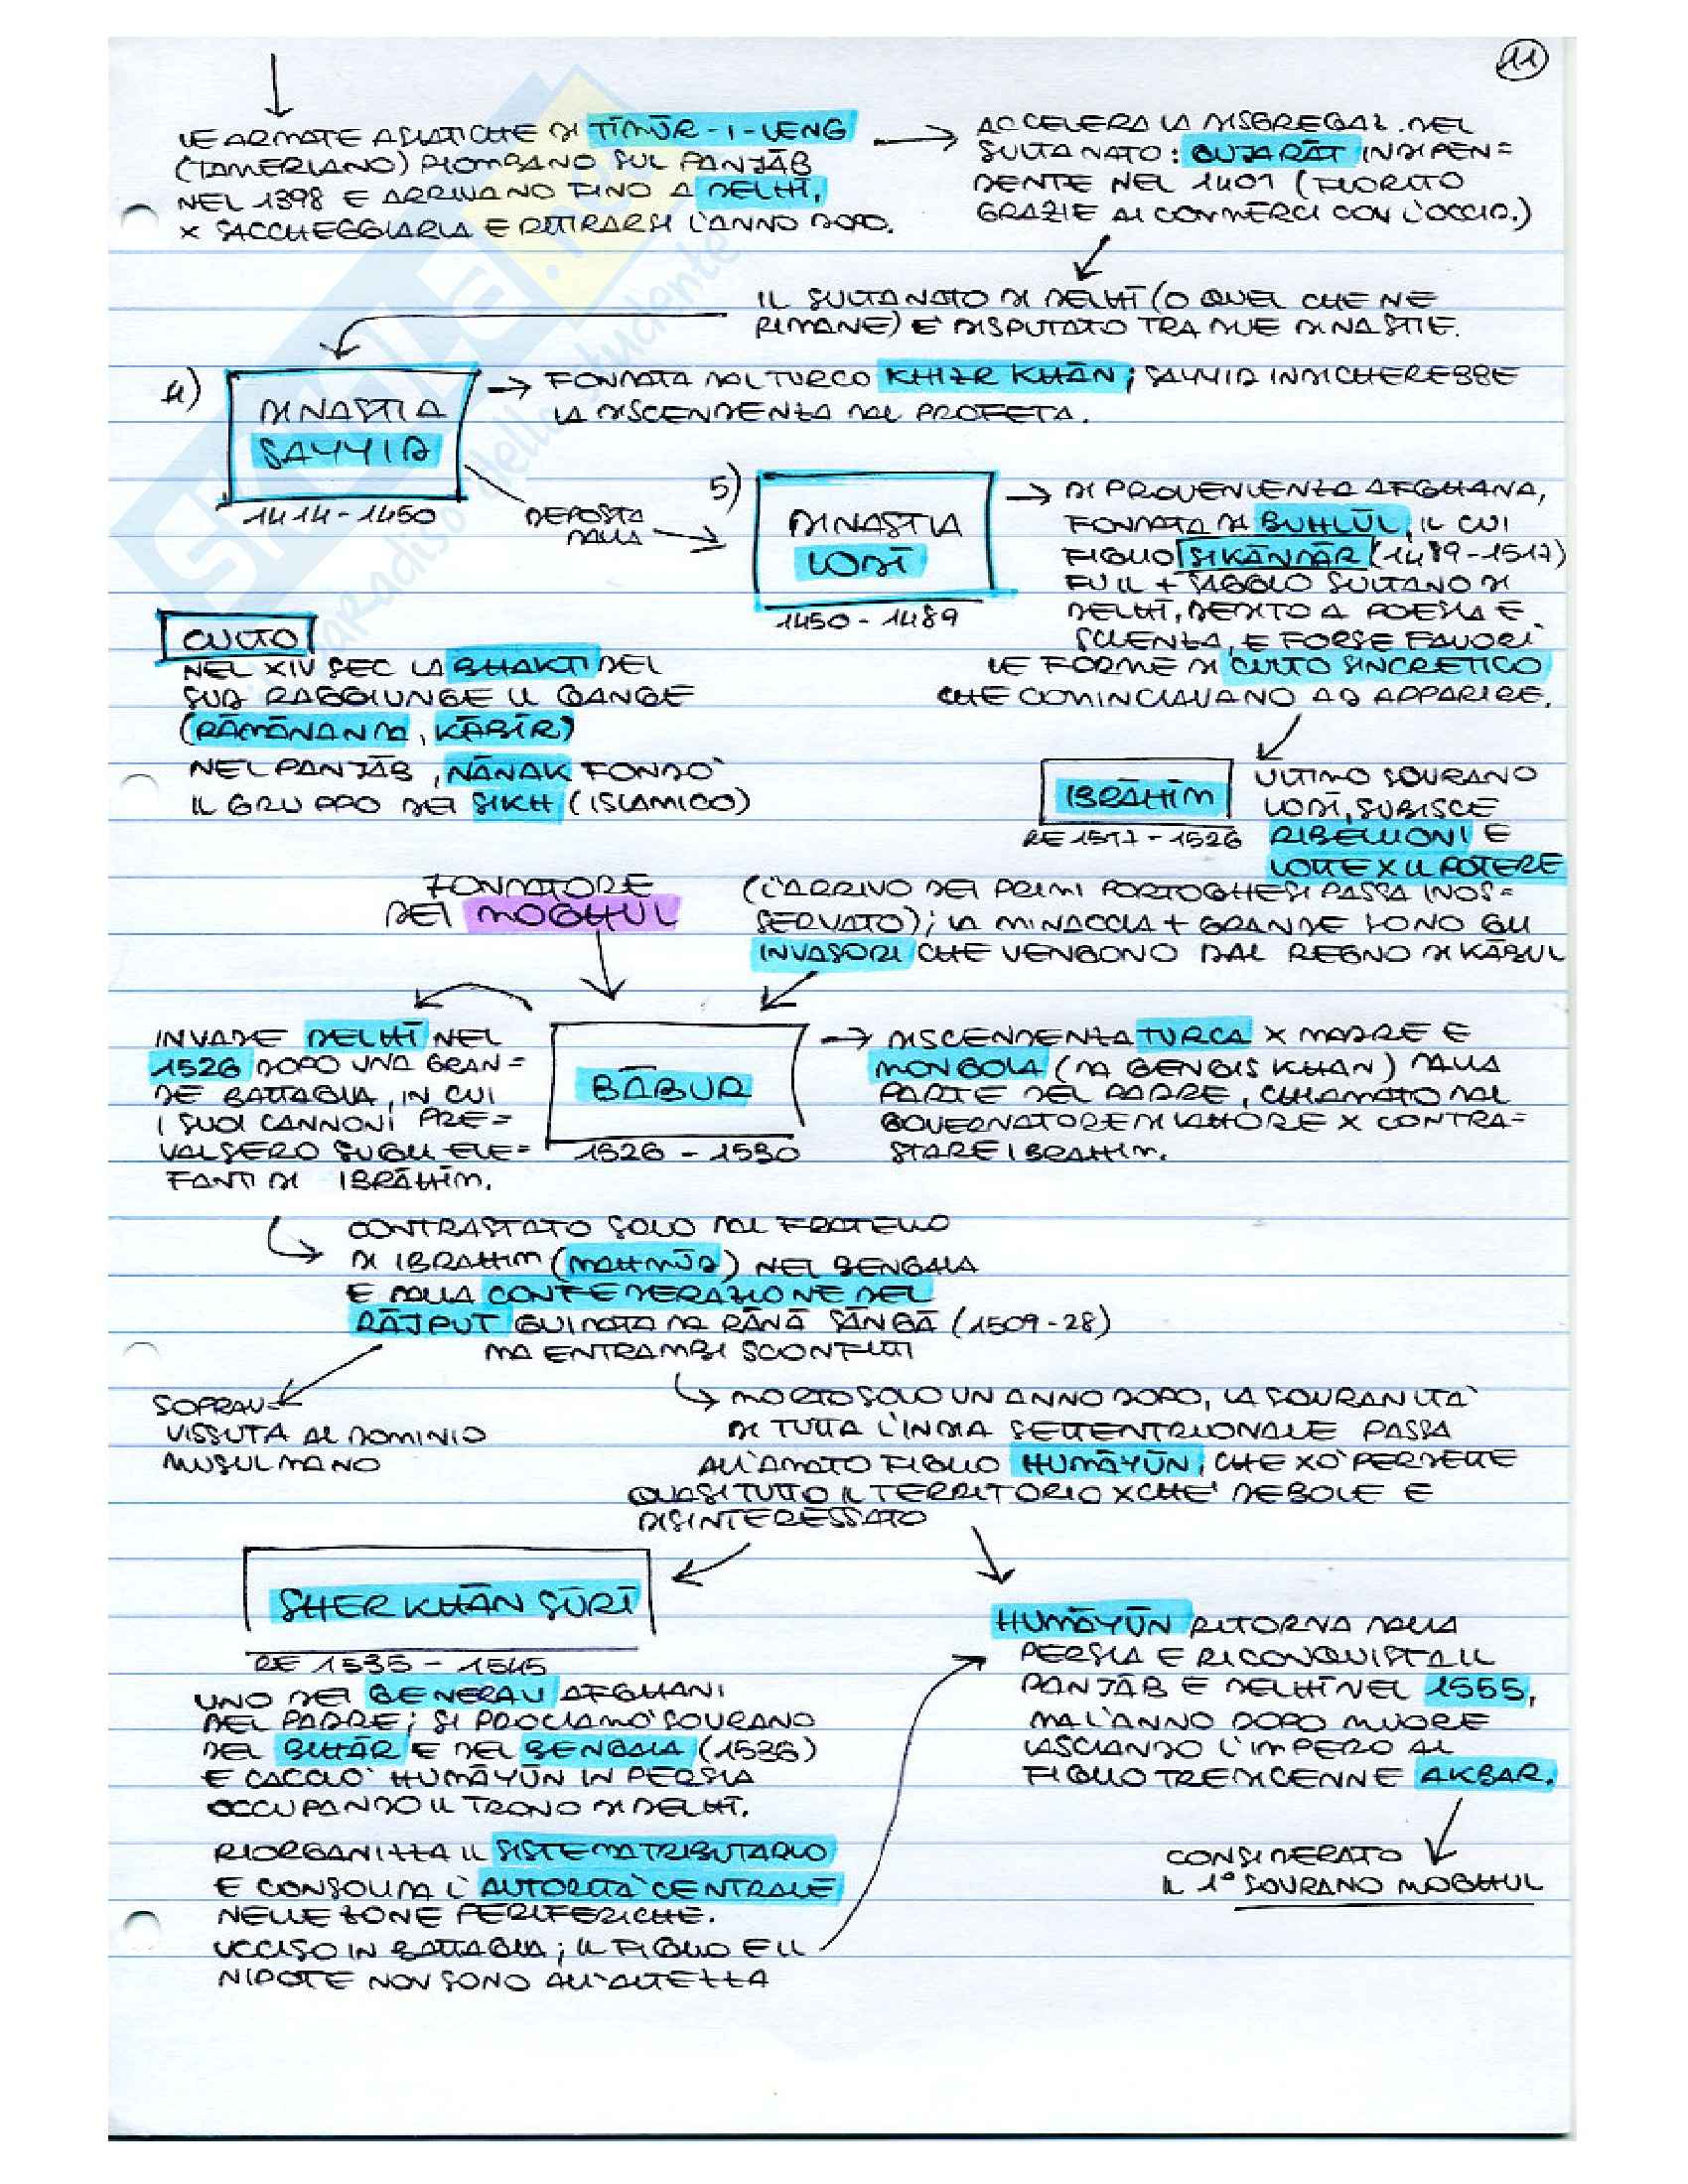 11
LE ARMATE ASIATICHE DI TĪMŪR-I-LENG
(TAMERLANO) PIOMBANO SUL PANJĀB
NEL 1398 E ARRIVANO FINO A DELHĪ,
X SACCHEGGIARLA E RITIRARSI L'ANNO DOPO.
ACCELERA LA DISGREGAZ. DEL
SULTANATO: GUJARĀT INDIPEN=
DENTE NEL 1401 (FIORITO
GRAZIE AI COMMERCI CON L'OCCID.)
IL SULTANATO DI DELHĪ (O QUEL CHE NE
RIMANE) E' DISPUTATO TRA DUE DINASTIE.
4)
DINASTIA
SAYYID
1414-1450
FONDATA DAL TURCO KHIZR KHĀN; SAYYID INDICHEREBBE
LA DISCENDENZA DAL PROFETA.
DEPOSTA
DALLA
5)
DINASTIA
LODĪ
1450-1489
DI PROVENIENZA AFGHANA,
FONDATA DA BUHLŪL, IL CUI
FIGLIO SIKĀNDĀR (1489-1517)
FU IL + SAGGIO SULTANO DI
DELHĪ, DEDITO A POESIA E
SCIENZA, E FORSE FAVORÌ
LE FORME DI CULTO SINCRETICO
CHE COMINCIAVANO AD APPARIRE.
CULTO
NEL XIV SEC LA BHAKTI DEL
SUD RAGGIUNGE IL GANGE
(RĀMĀNANDA, KĀBĪR)
NEL PANJĀB, NĀNAK FONDO'
IL GRUPPO DEI SIKH (ISLAMICO)
IBRĀHĪM
RE 1517-1526
ULTIMO SOVRANO
LODĪ, SUBISCE
RIBELLIONI E
LOTTE X IL POTERE
(L'ARRIVO DEI PRIMI PORTOGHESI PASSA INOS=
SERVATO); LA MINACCIA + GRANDE SONO GLI
INVASORI CHE VENGONO DAL REGNO DI KĀBUL
FONDATORE
DEI MOGHUL
BĀBUR
1526-1530
INVADE DELHĪ NEL
1526 DOPO UNA GRAN=
DE BATTAGLIA, IN CUI
I SUOI CANNONI PRE=
VALSERO SUGLI ELE=
FANTI DI IBRĀHĪM.
DISCENDENZA TURCA X MADRE E
MONGOLA (DA GENGIS KHAN) DALLA
PARTE DEL PADRE, CHIAMATO DAL
GOVERNATORE DI LAHORE X CONTRA=
STARE IBRAHIM.
CONTRASTATO SOLO DAL FRATELLO
DI IBRAHIM (MAHMŪD) NEL BENGALA
E DALLA CONFEDERAZIONE DEL
RĀJPUT GUIDATA DA RĀNĀ SĀNGĀ (1509-28)
MA ENTRAMBI SCONFITTI
SOPRAV=
VISSUTA AL DOMINIO
MUSULMANO
MORTO SOLO UN ANNO DOPO, LA SOVRANITA'
DI TUTTA L'INDIA SETTENTRIONALE PASSA
ALL'AMATO FIGLIO HUMĀYŪN, CHE XO' PERDETTE
QUASI TUTTO IL TERRITORIO XCHE' DEBOLE E
DISINTERESSATO
SHER KHĀN SŪRĪ
RE 1535-1545
UNO DEI GENERALI AFGHANI
DEL PADRE; SI PROCLAMO' SOVRANO
DEL BIHĀR E DEL BENGALA (1536)
E CACCIO' HUMĀYŪN IN PERSIA
OCCUPANDO IL TRONO DI DELHĪ.
RIORGANIZZA IL SISTEMA TRIBUTARIO
E CONSOLIDA L'AUTORITA' CENTRALE
NELLE ZONE PERIFERICHE.
UCCISO IN BATTAGLIA; IL FIGLIO E IL
NIPOTE NON SONO ALL'ALTEZZA
HUMĀYŪN RITORNA DALLA
PERSIA E RICONQUISTA IL
PANJĀB E DELHĪ NEL 1555,
MA L'ANNO DOPO MUORE
LASCIANDO L'IMPERO AL
FIGLIO TREDICENNE AKBAR.
CONSIDERATO
IL 1° SOVRANO MOGHUL
SKUOLA.net
il paradiso dello studente